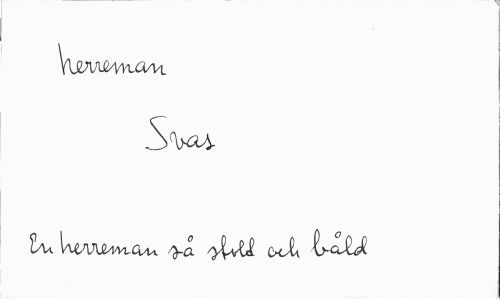 herreman
Svas
En herreman så stold och båld